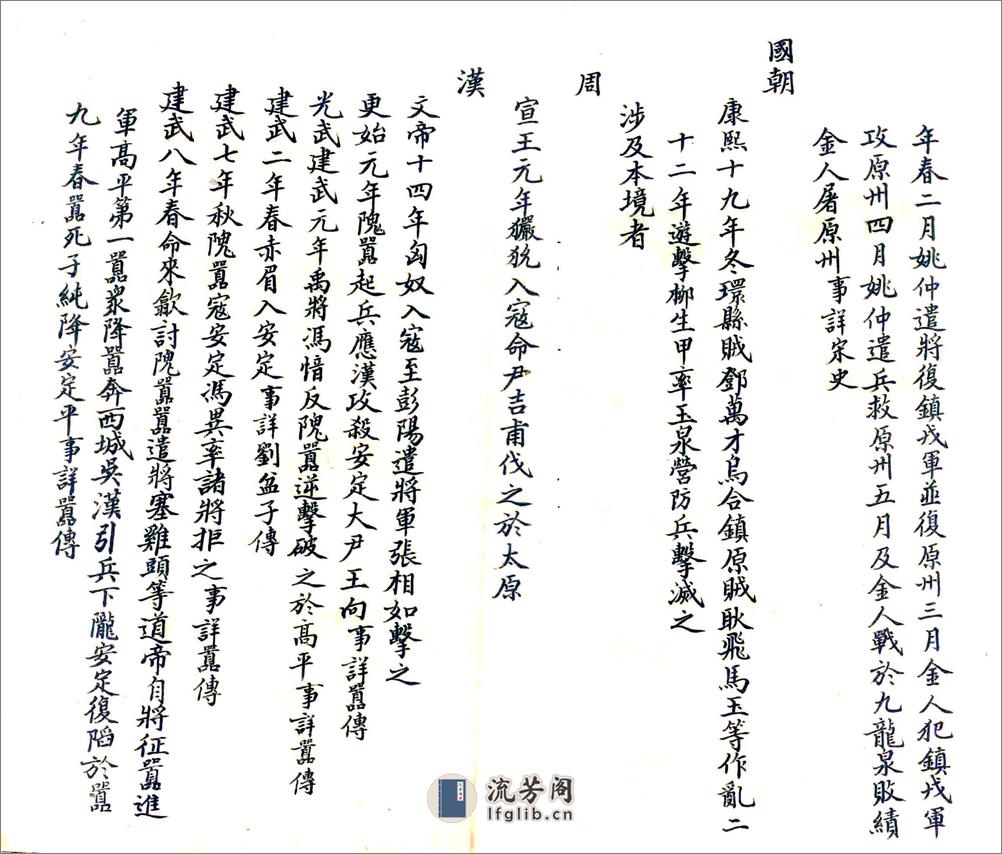 年春二月姚仲遣將復鎮戎軍並復原州三月金人犯鎮戎軍
攻原州四月姚仲遣兵救原州五月及金人戰於九龍泉敗績
金人屠原州事詳宋史
國朝
康熙十九年冬環縣賊鄧萬才烏合鎮原賊耿飛馬玉等作亂二
十二年遊擊柳生甲率玉泉營防兵擊滅之
涉及本境者
周
宣王元年玁狁入寇命尹吉甫伐之於太原
漢
文帝十四年匈奴入寇至彭陽遣將軍張相如擊之
更始元年隗囂起兵應漢攻殺安定大尹王向事詳囂傳
光武建武元年禹將馮愔反隗囂逆擊破之於高平事詳囂傳
建武二年春赤眉入安定事詳劉盆子傳
建武七年秋隗囂寇安定馮異率諸將拒之事詳囂傳
建武八年春命來歙討隗囂囂遣將塞雞頭等道帝自將征囂進
軍高平第一囂眾降囂奔西城吳漢引兵下隴安定復陷於囂
九年春囂死子純降安定平事詳囂傳
流芳阁
lfglib.cn